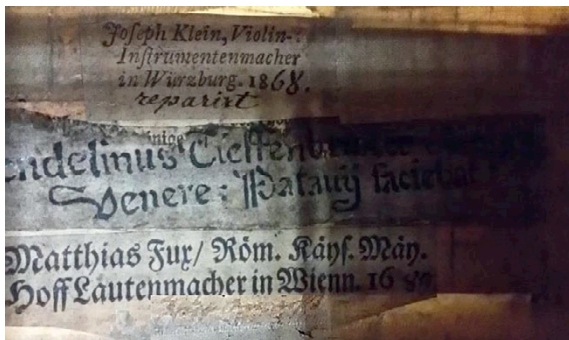 Joseph Klein, Violin-:
Instrumentenmacher
in Würzburg. 1868.
reparirt
endelinus Tieffenbrucker
Venere: Patavij faciebat
Matthias Fux/ Röm. Käys. Mäy.
Hoff Lautenmacher in Wienn. 16